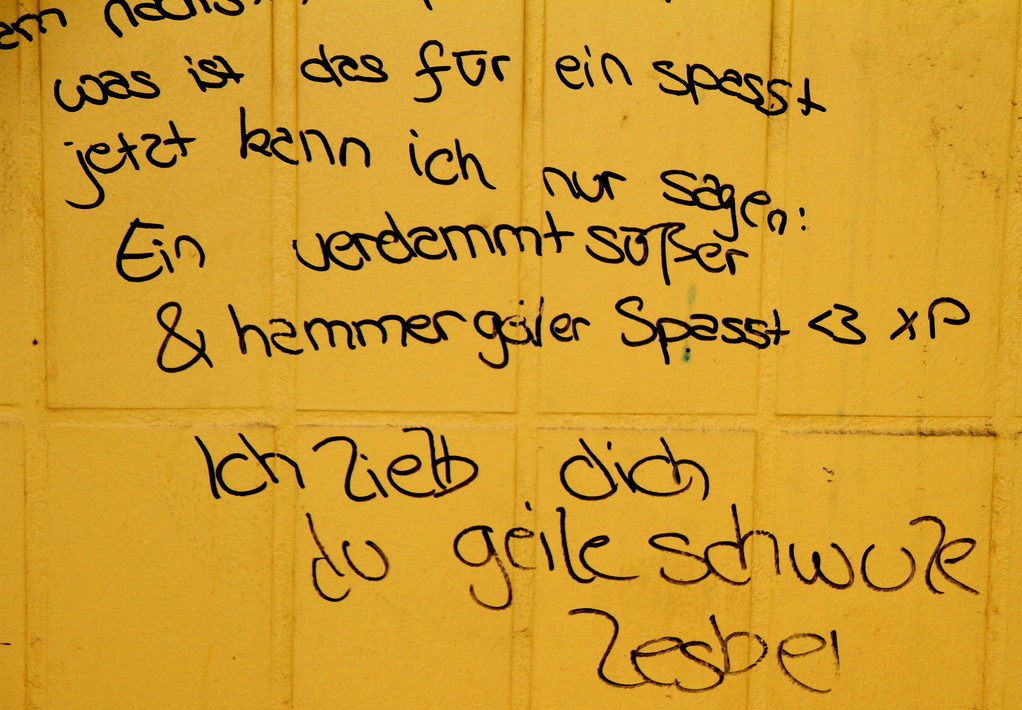 was ist das für ein spasst
jetzt kann ich nur sagen:
Ein verdammt süßer
& hammer geiler Spasst <3 xP
Ich lieb dich
du geile schwule
lesbe